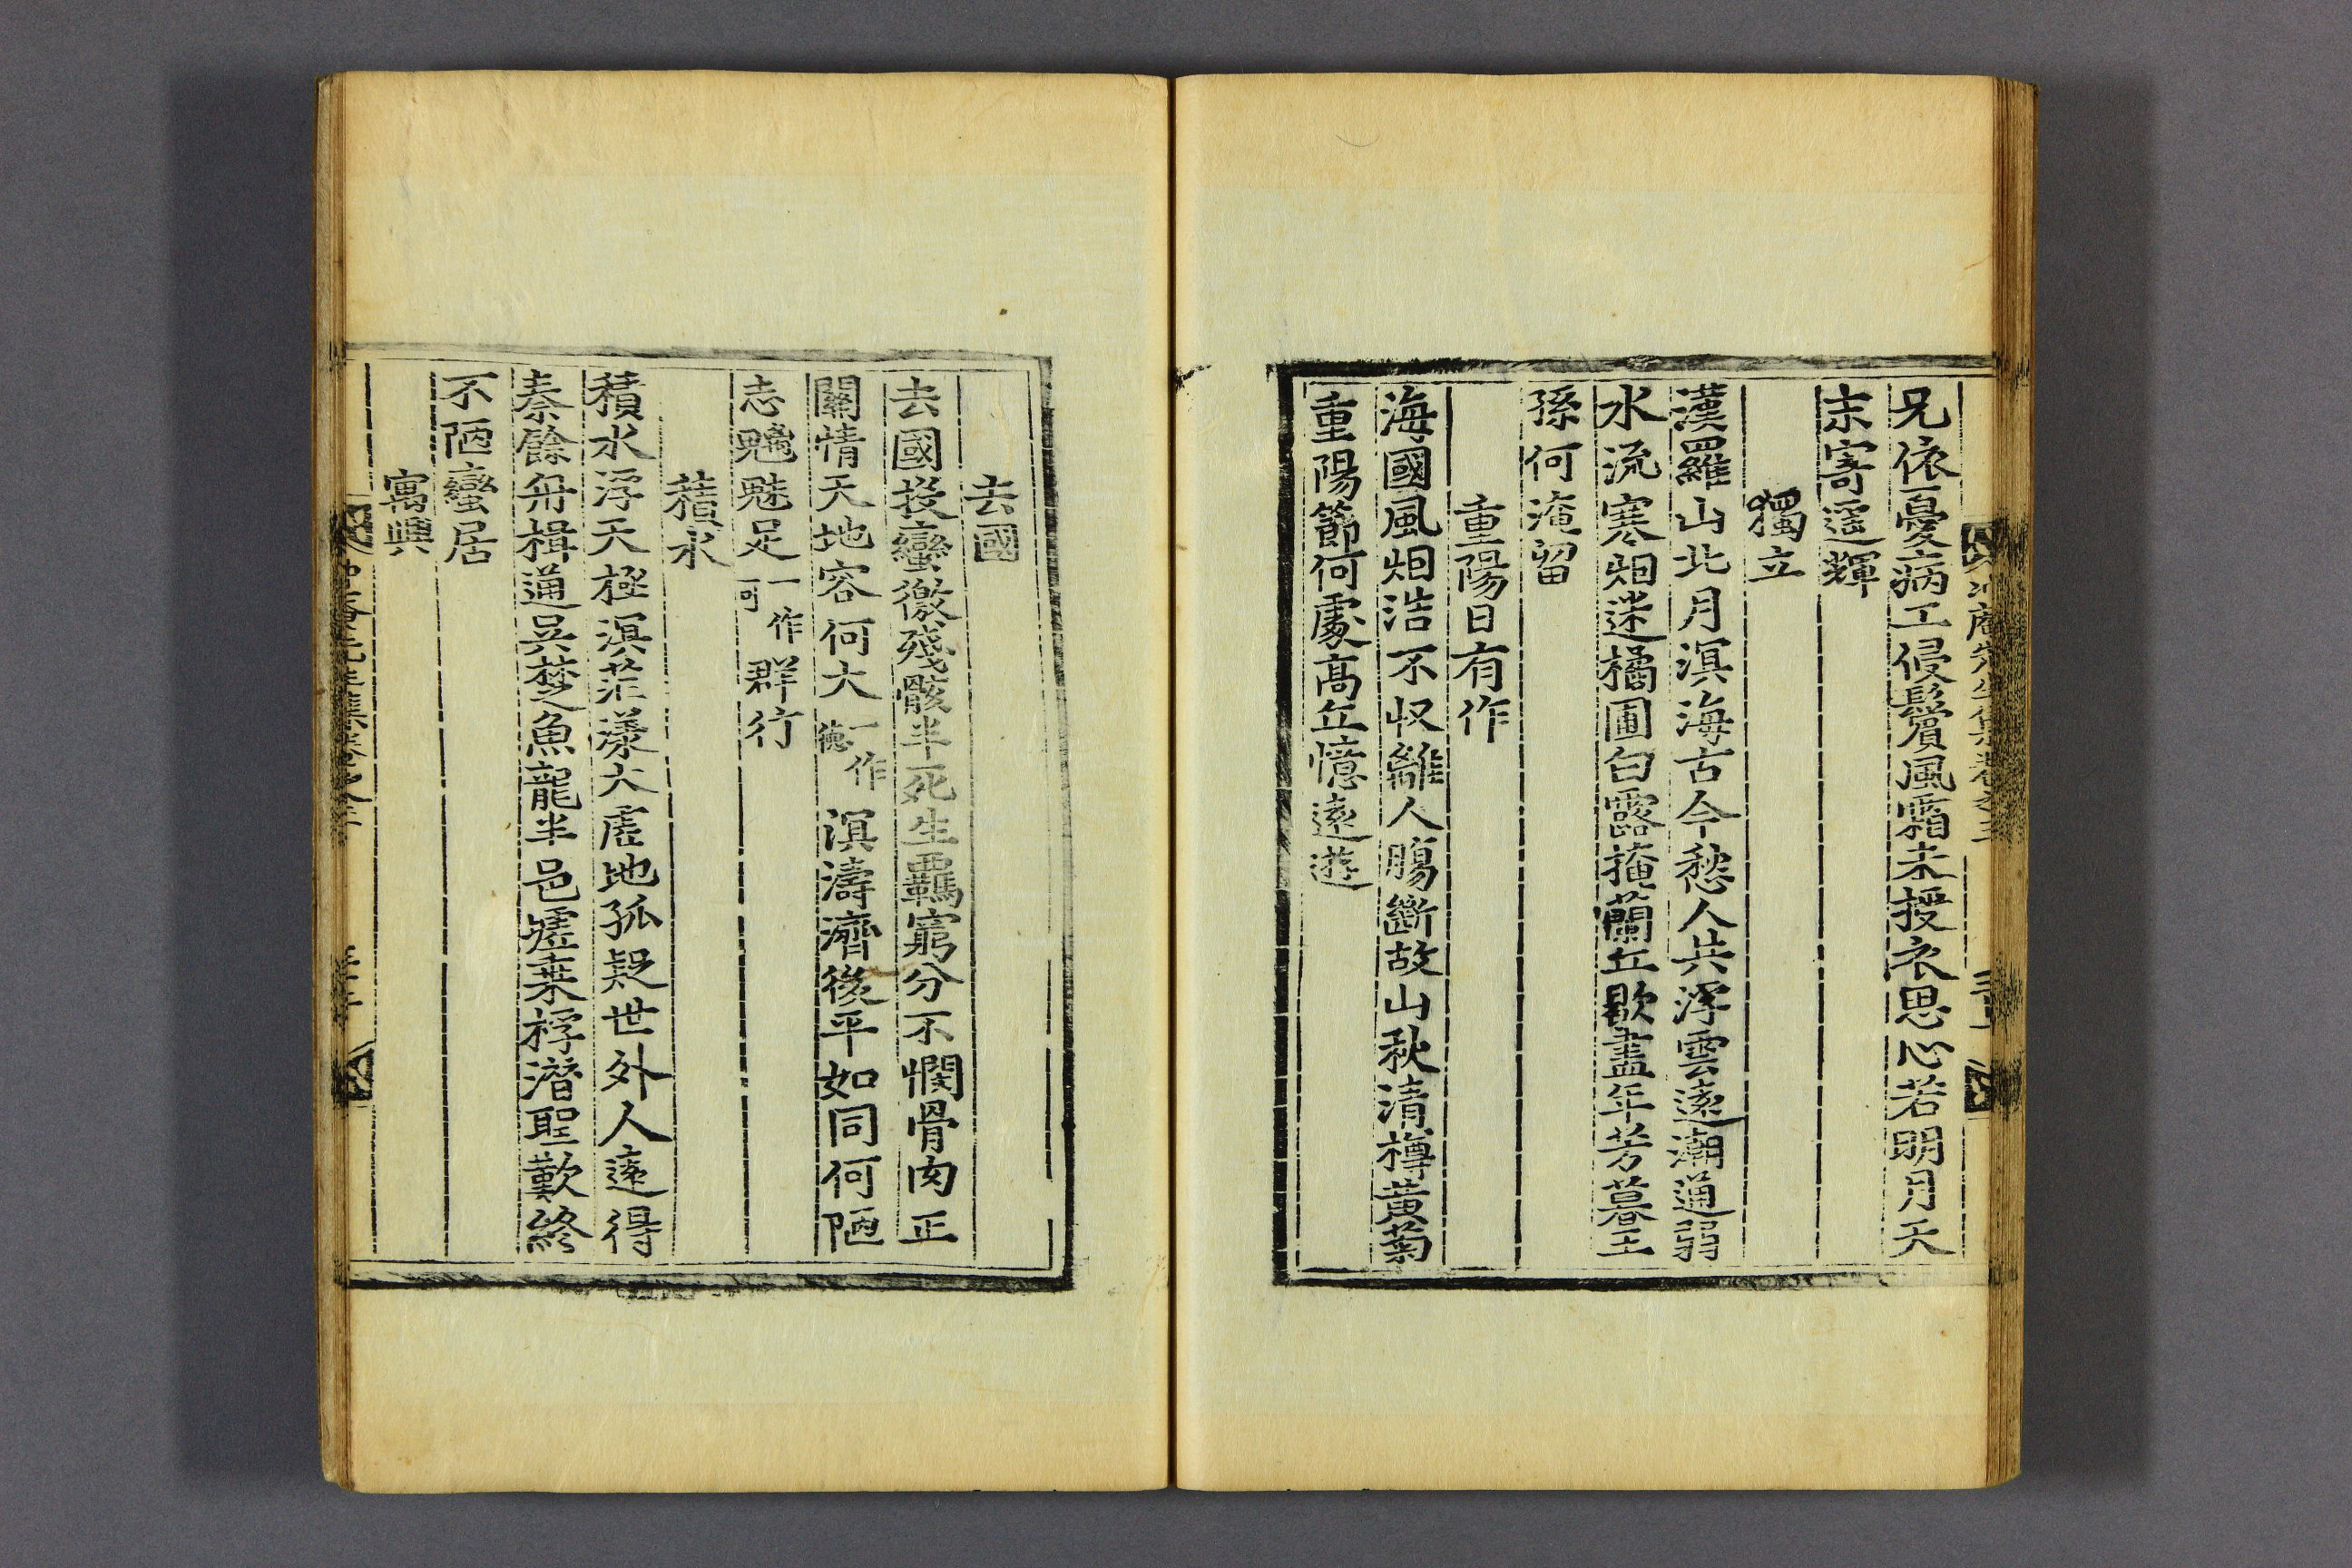 冲庵先生集卷之三
兄依憂病工侵鬢風霜未授衣思心若明月天
末寄遥輝
獨立
漢羅山北月溟海古今愁人共浮雲遠潮通弱
水流寒烟迷橘圃白露掩蘭丘歇盡年芳暮王
孫何淹留
重陽日有作
海國風烟浩不収離人膓斷故山秋清樽黃菊
重陽節何處高丘憶遠遊
去國
去國投蠻徼殘骸半死生羈窮分不憫骨肉正
關情天地容何大一作德溟濤濟後平如同何陋
志魑魅足一作可群行
積水
積水浮天極溟茫漾大虛地孤疑世外人遠得
秦餘舟楫通吳楚魚龍半邑墟乘桴潛聖歎終
不陋蠻居
寓興
冲庵先生集卷之三